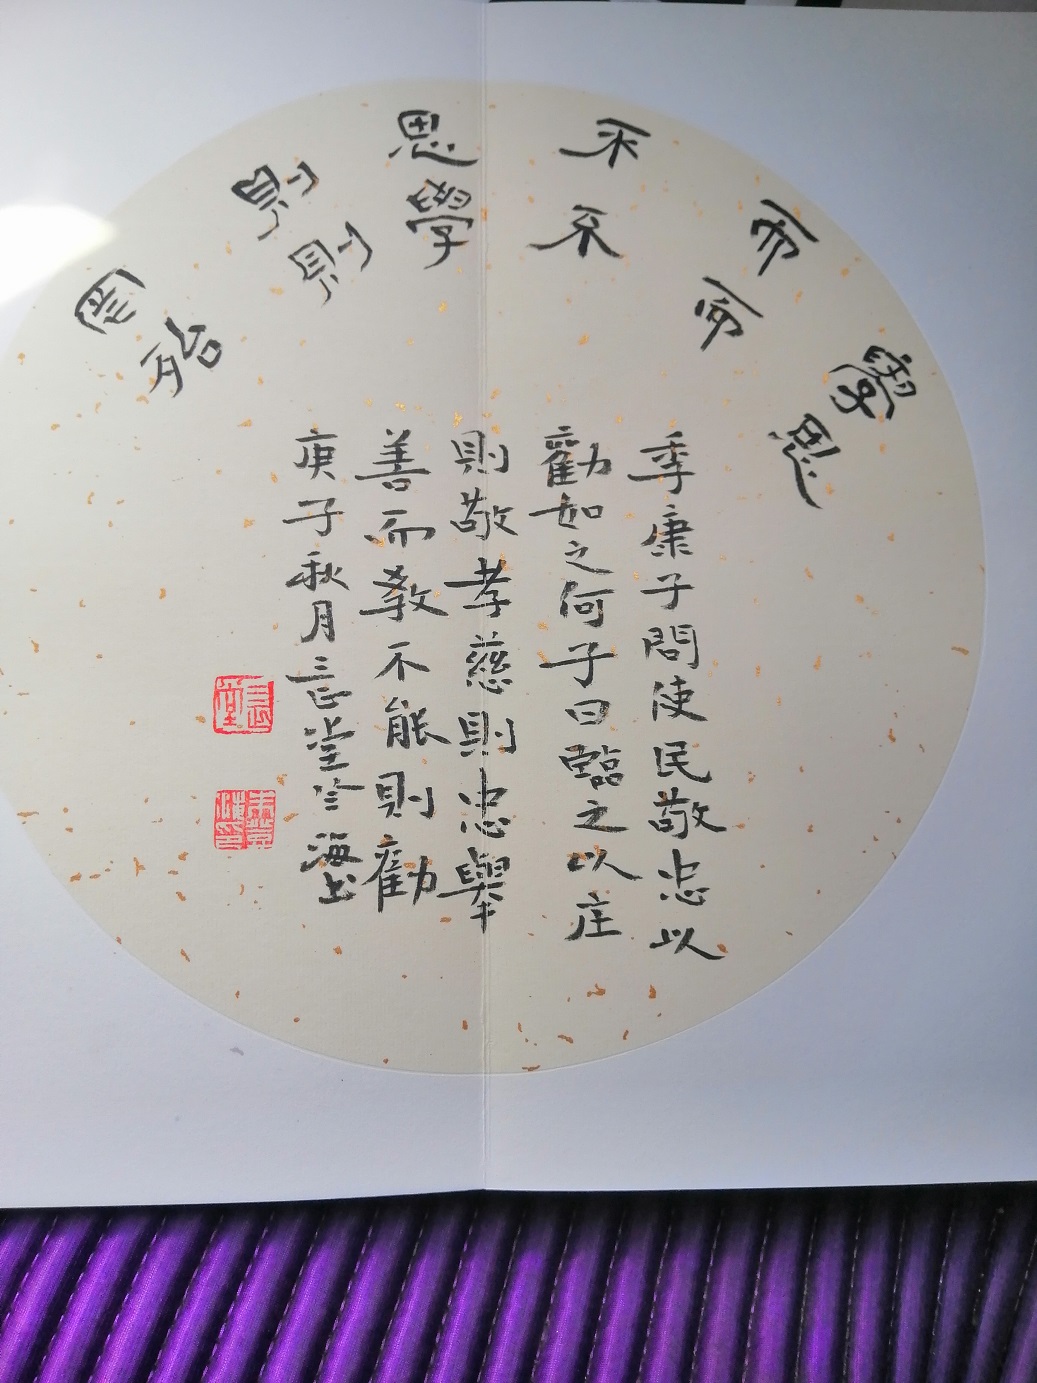 學而不思則罔
思而不學則殆
季康子問使民敬忠以
勸如之何子曰臨之以庄
則敬孝慈則忠舉
善而教不能則勸
庚子秋月三忘堂 海书